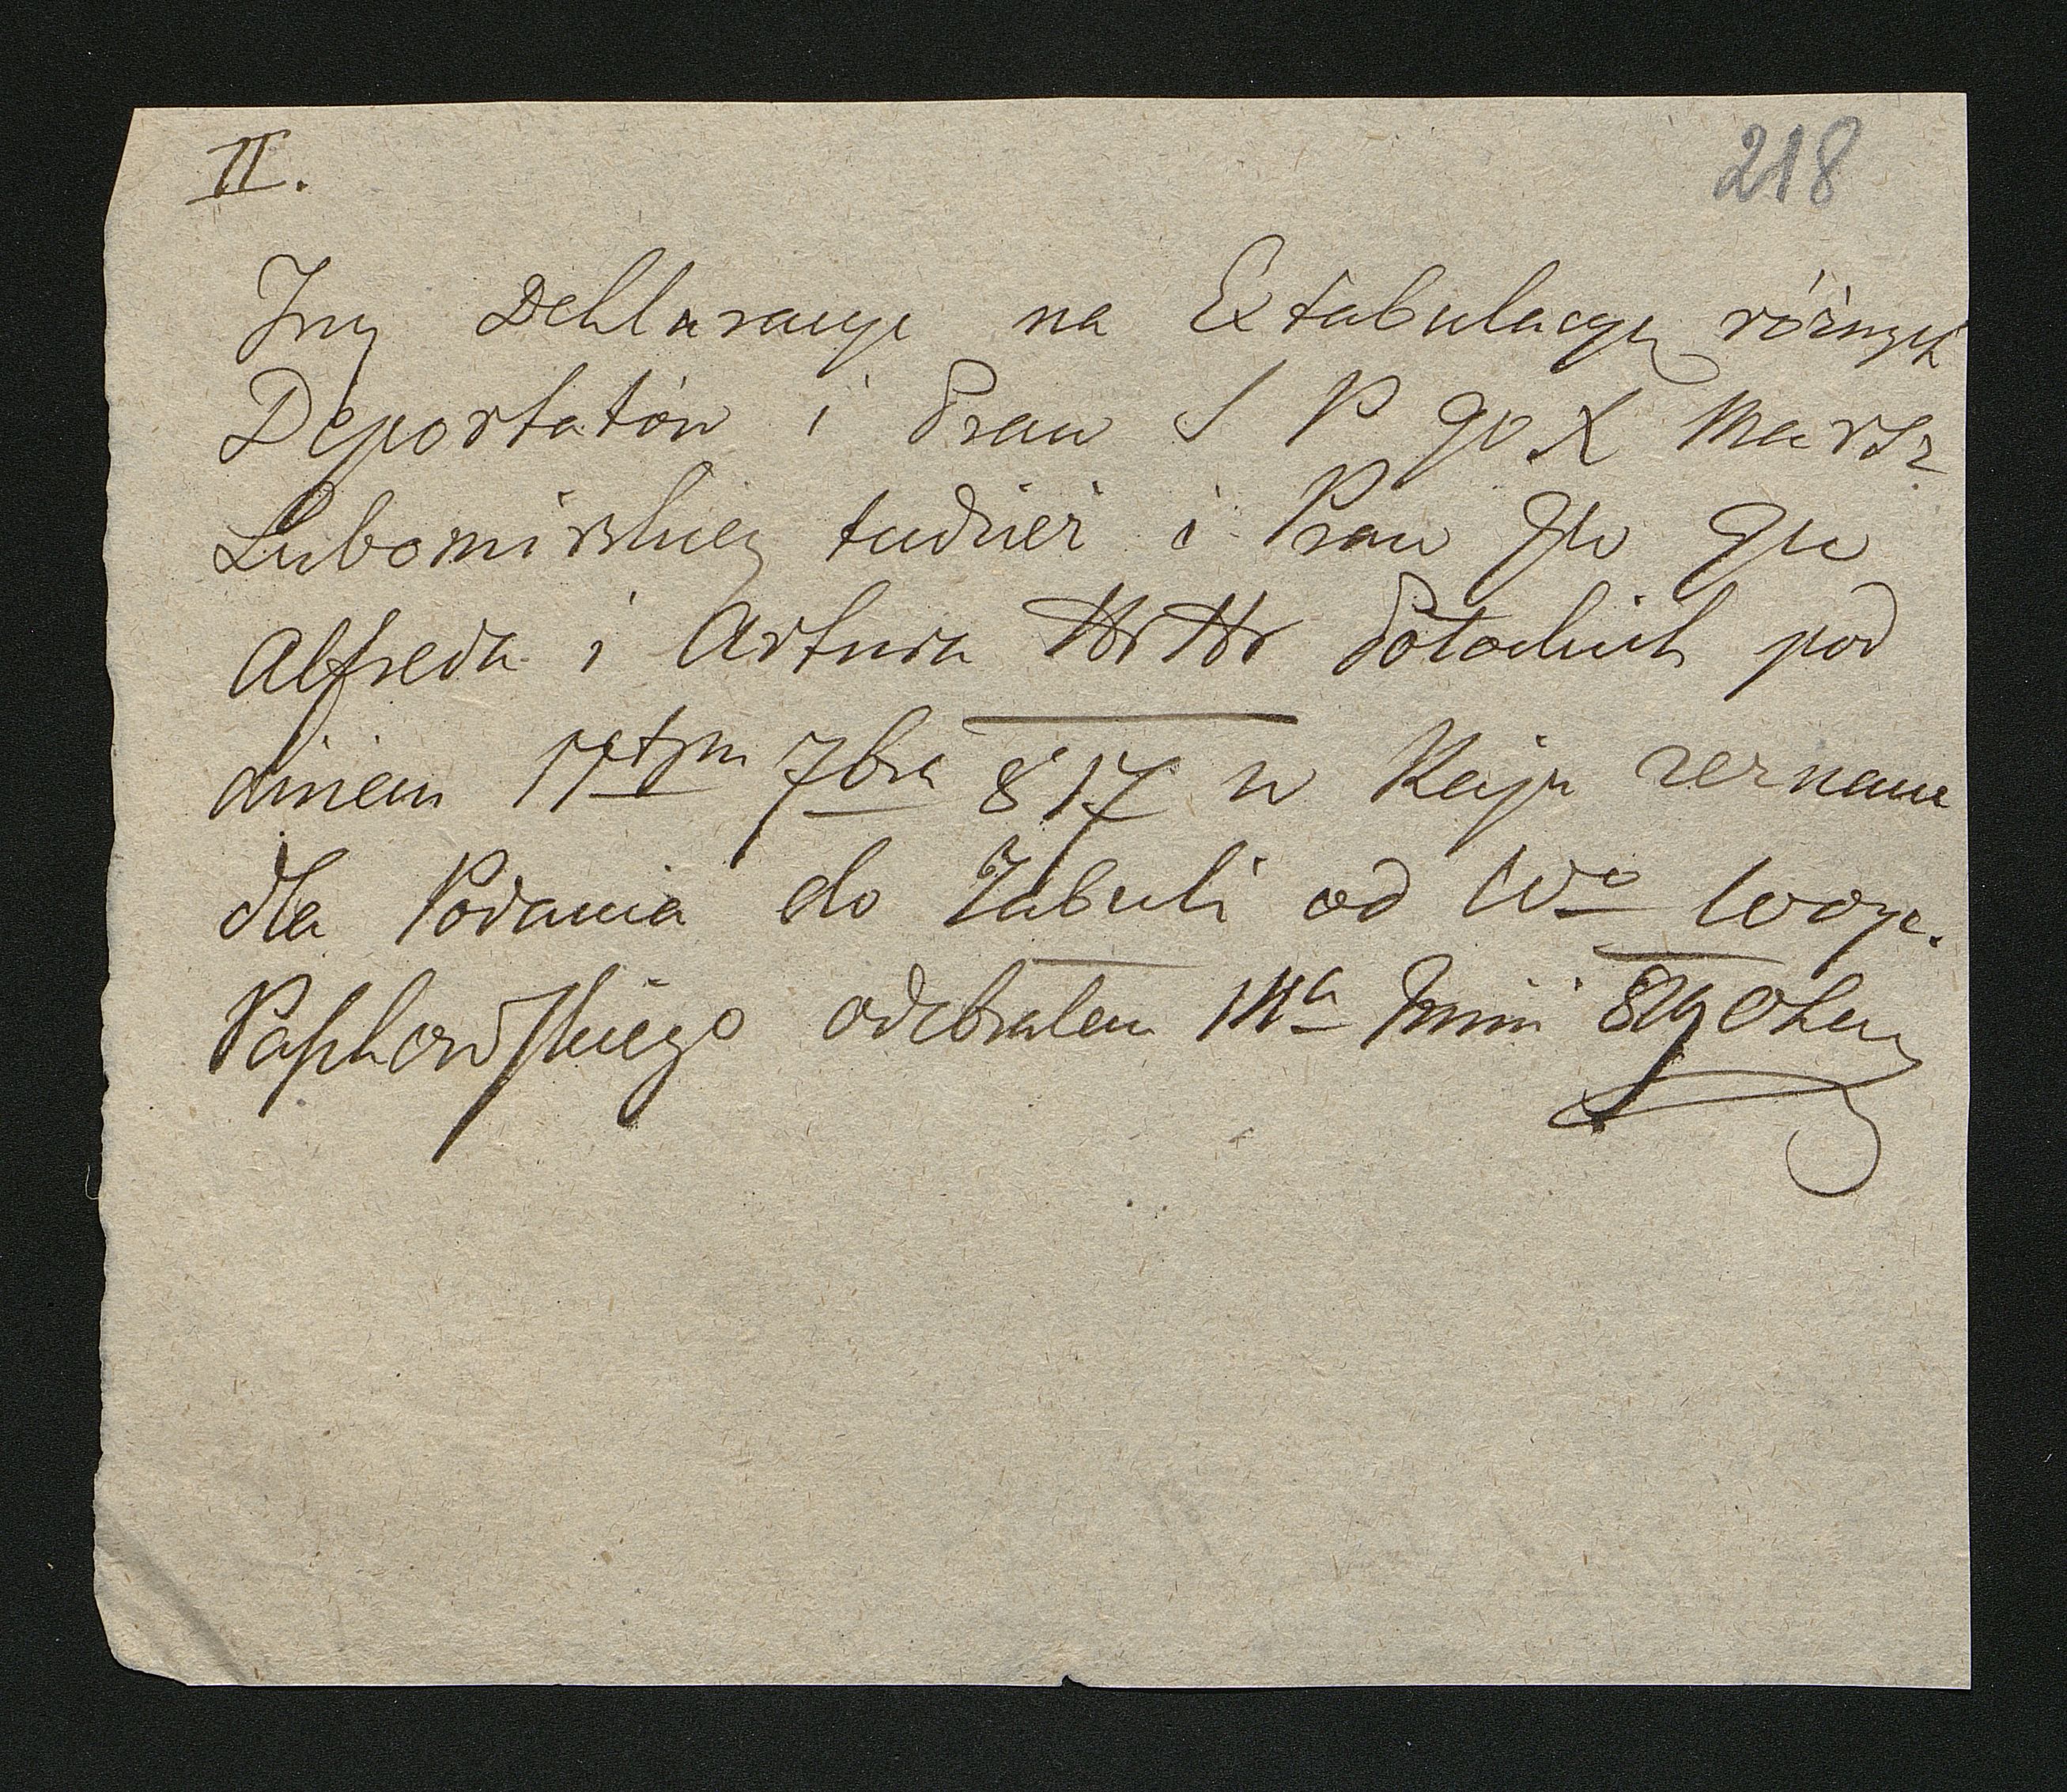 II.
218
Trzy Deklaracye na Extabulacyę różnych
Deportatów i Praw S P JO X Marsz
Lubomirskiey tudzież i Praw JW JW
Alfreda i Artura Hr Hr Potockich pod
dniem 17tym 7bra 817 w zeznane
dla Podania do Tabuli od Wo Woyc.
Paszkowskiego odebrałem 14a Junii 819